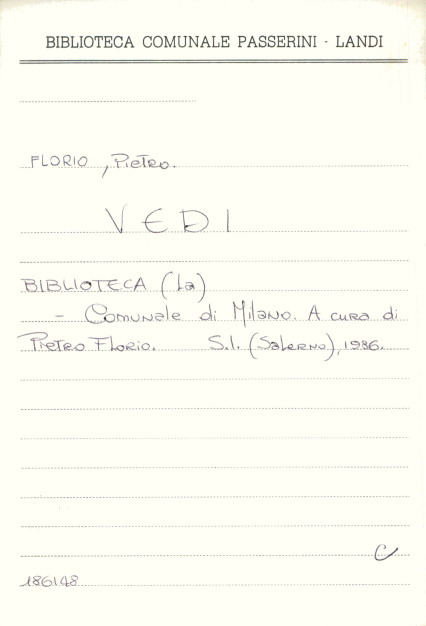 BIBLIOTECA COMUNALE PASSERINI - LANDI
FLORIO, Pietro.
VEDI
BIBLIOTECA (La)
- Comunale di Milano. A cura di
Pietro Florio. S.l. (Salerno), 1986.
C
186148